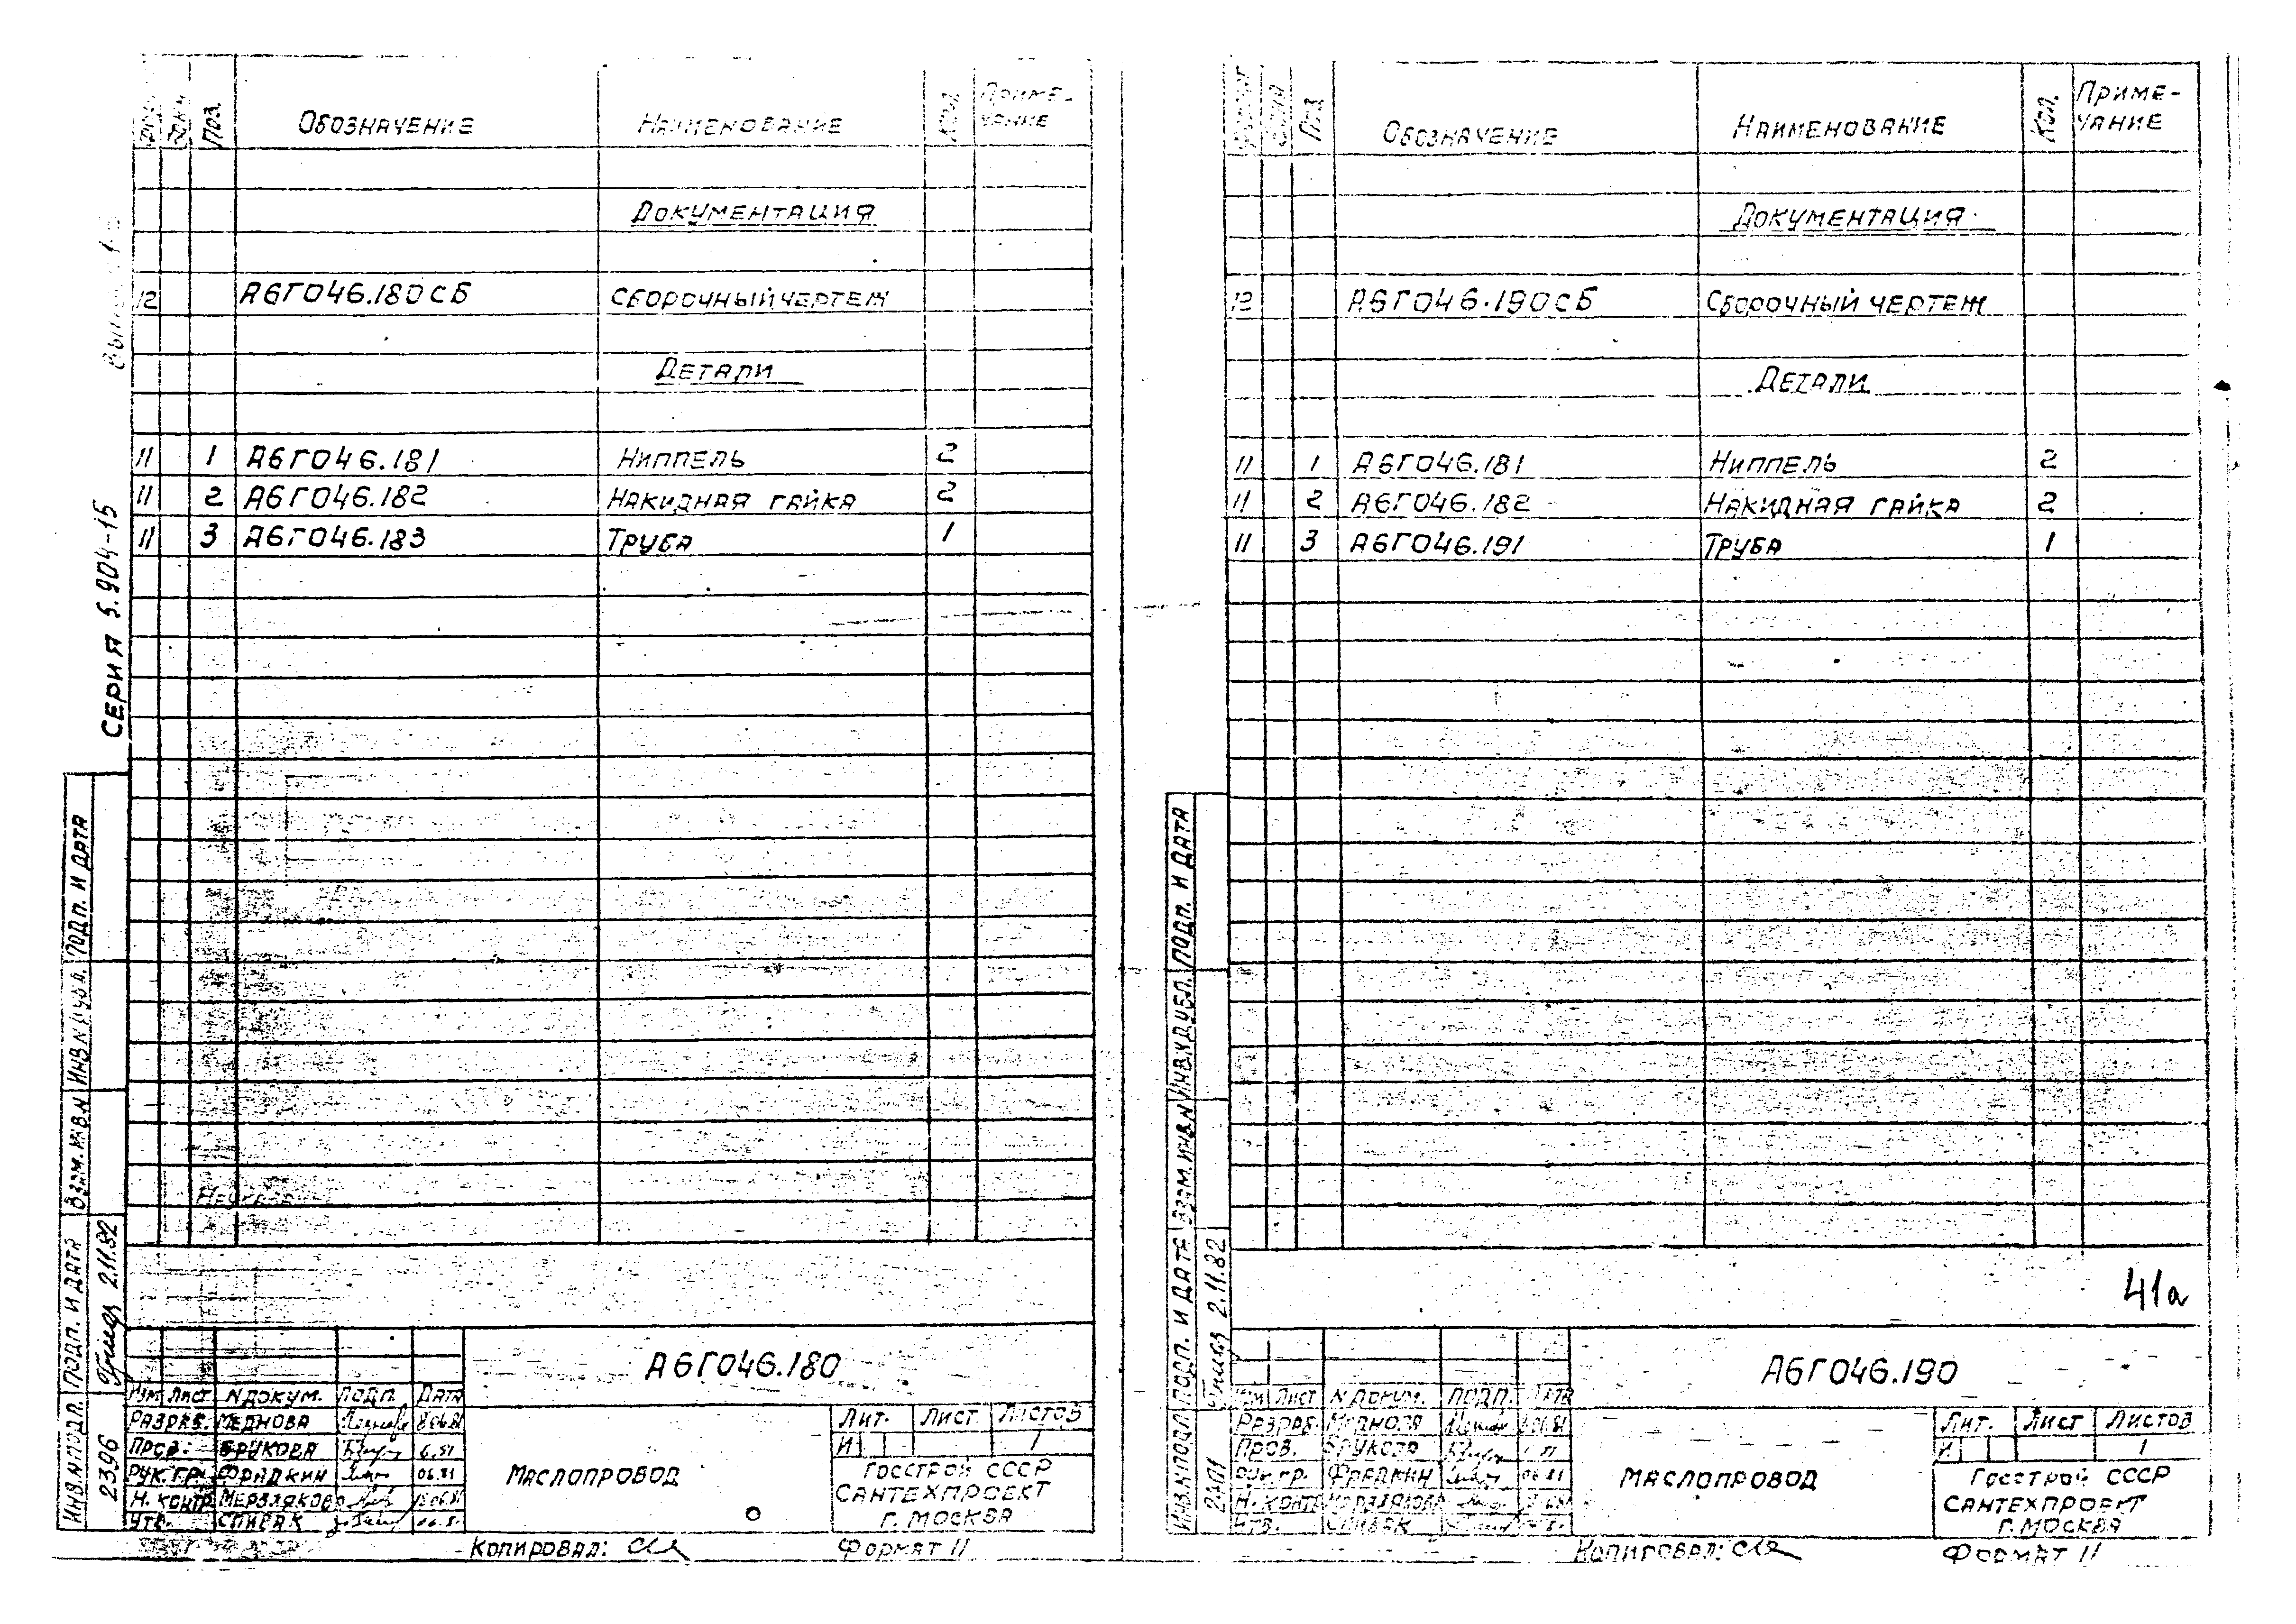 Поз. Обозначение Наименование Кол. Приме-
чание
Документация
12 А6Г046.180СБ Сборочный чертеж
Детали
11 1 А6Г046.181 Ниппель 2
11 2 А6Г046.182 Накидная гайка 2
11 3 А6Г046.183 Труба 1
Серия 5.904-15
Инв.N подл. Подп. и дата Взам. инв.N Инв.N дубл. Подп. и дата
2396 2.11.82
А6Г046.180
Изм Лист N докум. Подп. Дата
Разраб. Меднова
Пров. Брукова 6.81
Рук. гр. Фрадкин 06.81
Н. контр. Мерзлякова
Утв. Спивак
Маслопровод
Лит. Лист Листов
И 1
Госстрой СССР
Сантехпроект
г. Москва
Копировал: Формат 11
Поз. Обозначение Наименование Кол. Приме-
чание
Документация
12 А6Г046.190СБ Сборочный чертеж
Детали
11 1 А6Г046.181 Ниппель 2
11 2 А6Г046.182 Накидная гайка 2
11 3 А6Г046.191 Труба 1
Инв.N подл. Подп. и дата Взам. инв.N Инв.N дубл. Подп. и дата
2.11.82
41а
А6Г046.190
Изм Лист N докум. Подп. Дата
Разраб. Меднова
Пров. Брукова
Рук. гр. Фрадкин 06.81
Н. контр. Мерзлякова
Утв. Спивак
Маслопровод
Лит. Лист Листов
И 1
Госстрой СССР
Сантехпроект
г. Москва
Копировал: Формат 11